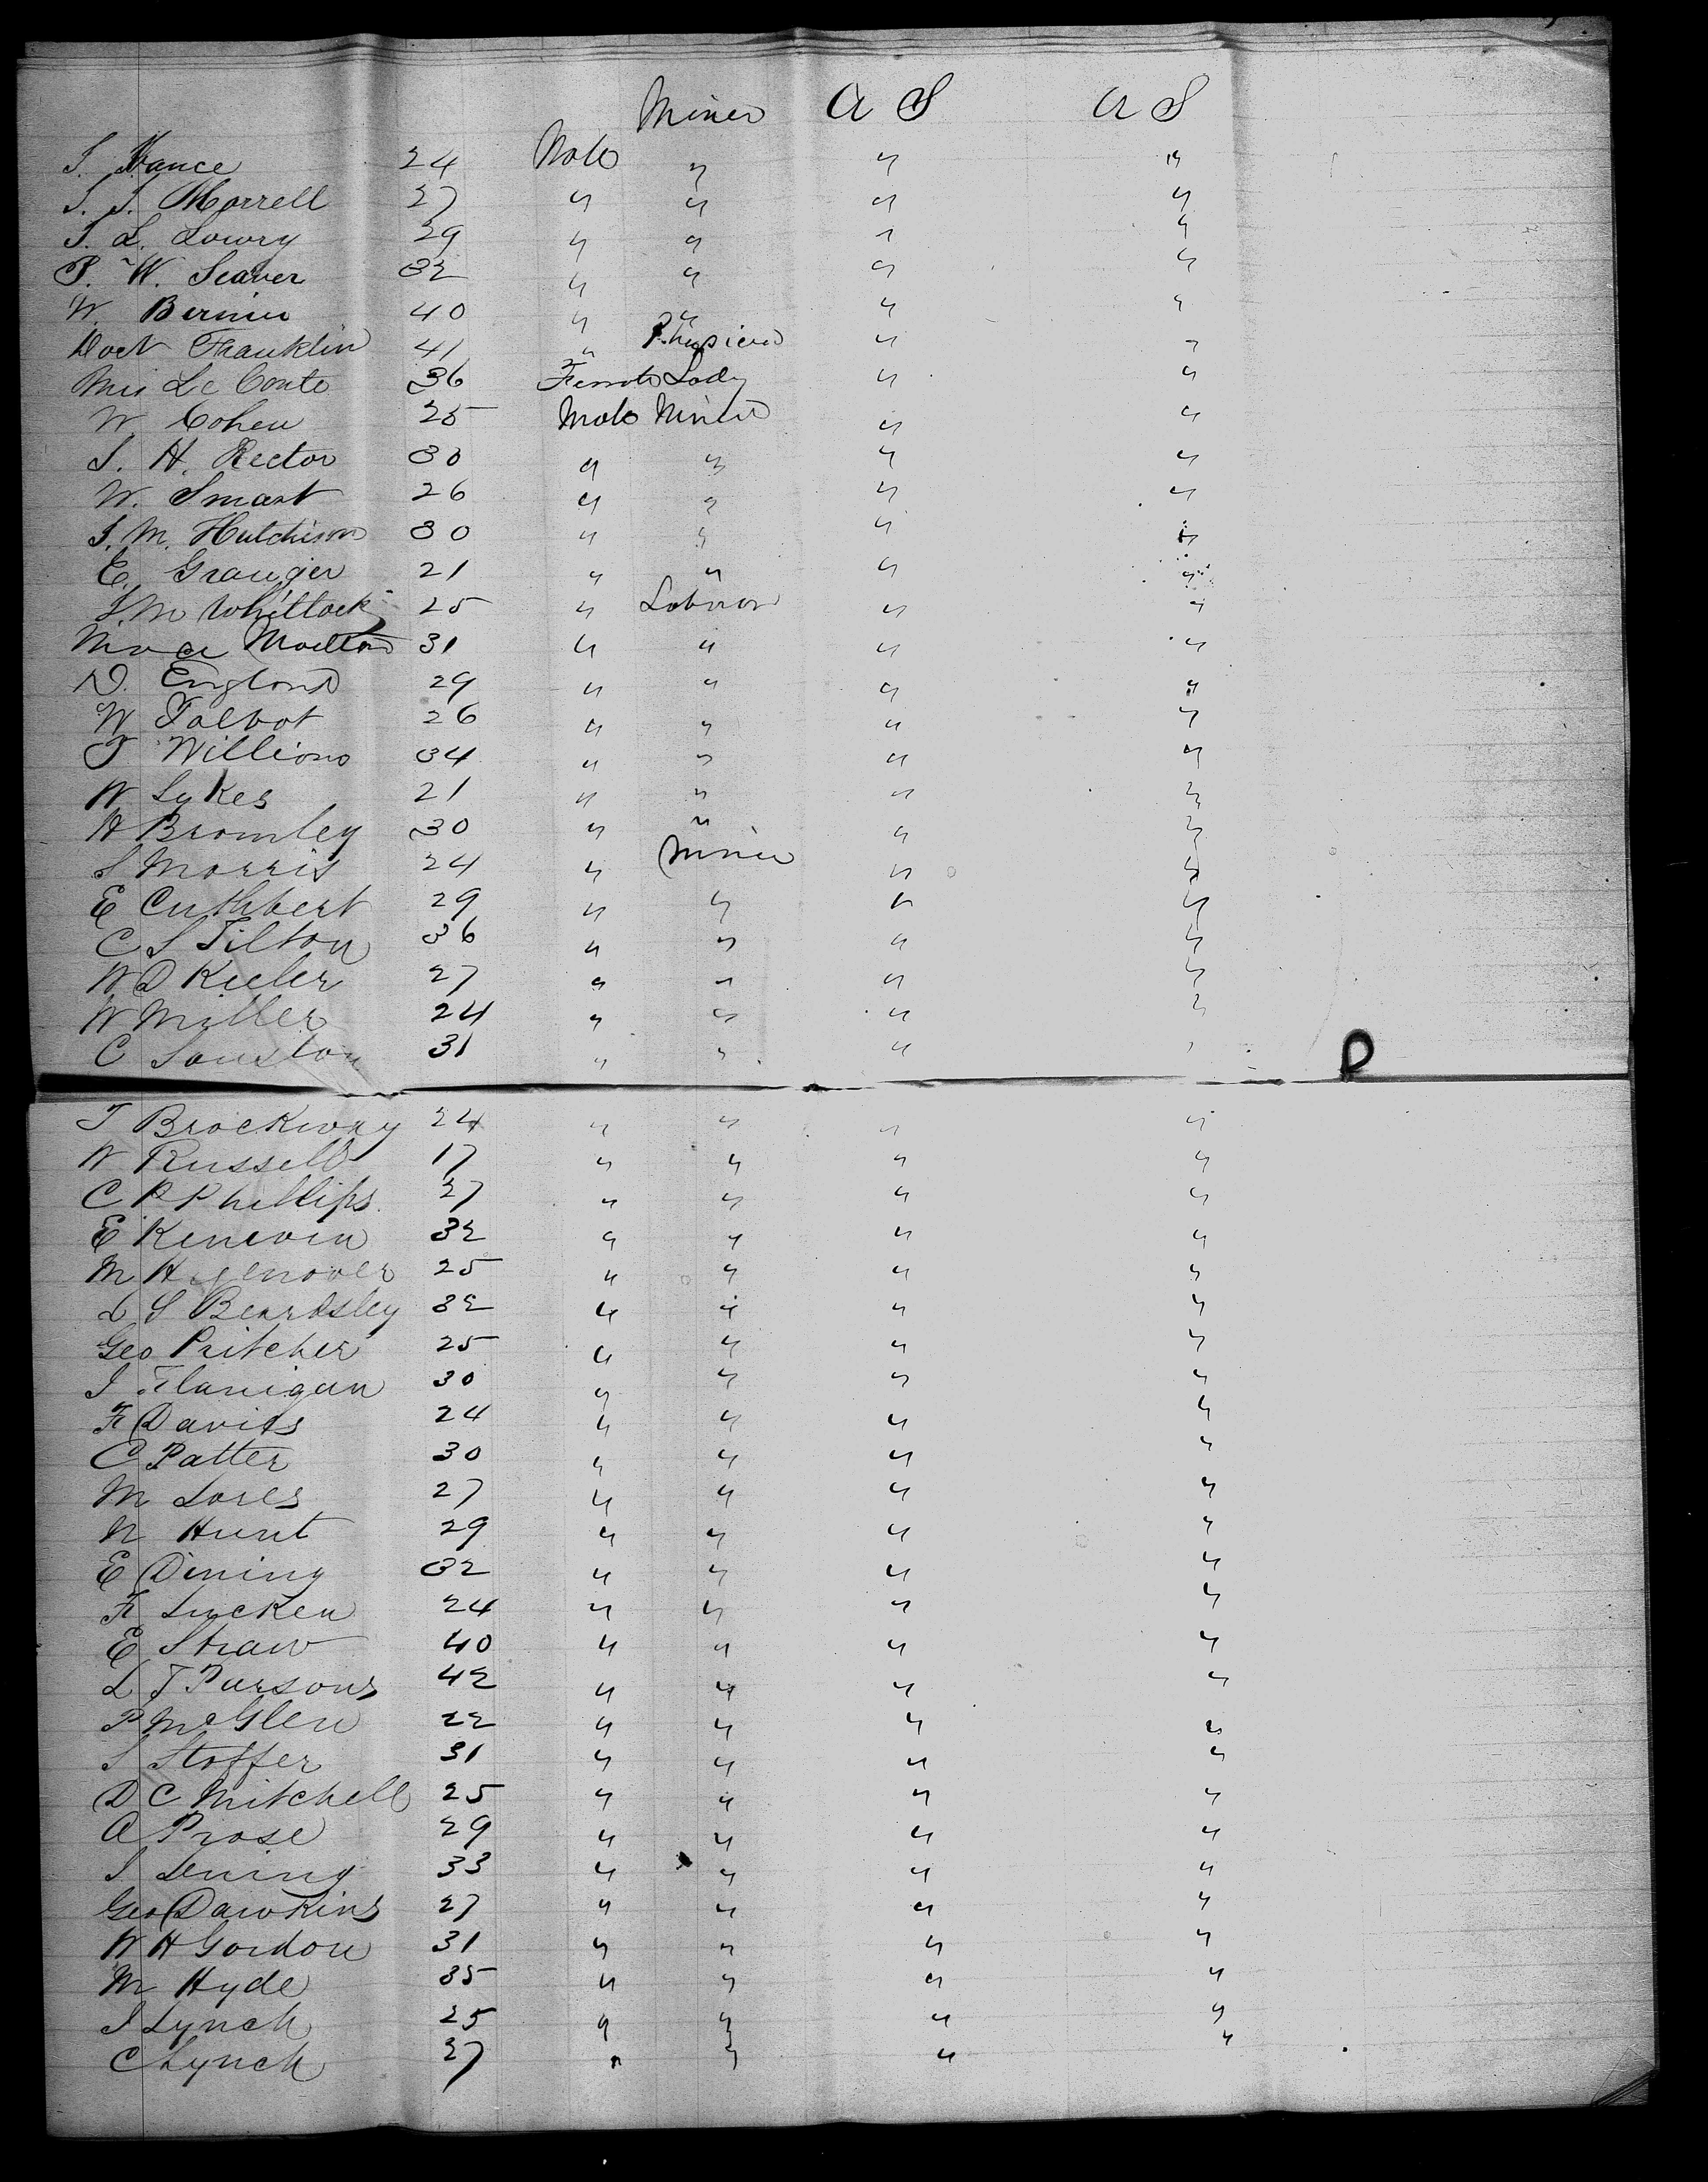 Miner U S U S
J. Vance 24 Male " " "
S. S. Morrell 27 " " " "
S. L. Lowry 29 " " " "
P. W. Seaver 32 " " " "
W. Bernier 40 " " " "
Doct Franklin 41 " Physician " "
Mrs Le Conte 36 Female Lady " "
W. Cohen 25 Male Miner " "
S. H. Rector 30 " " " "
W. Smart 26 " " " "
J. M. Hutchison 30 " " " "
E. Granger 21 " " " "
J. M Whittock 25 " Laborer " "
Moulton 31 " " " "
D. England 29 " " " "
W Talbot 26 " " " "
T Williams 34 " " " "
W Sykes 21 " " " "
H Bromley 30 " " " "
S Morris 24 " Miner " "
E Cuthbert 29 " " " "
C S Tilton 36 " " " "
W D Keeler 27 " " " "
W Miller 24 " " " "
C 31 " " " "
P
T Brockway 24 " " " "
W Russell 17 " " " "
C P Phillips. 27 " " " "
E 32 " " " "
M 25 " " " "
L S Beardsley 32 " " " "
Geo Pritcher 25 " " " "
J Flanigan 30 " " " "
F Davis 24 " " " "
C Patter 30 " " " "
M 27 " " " "
N Hunt 29 " " " "
E Dining 32 " " " "
F Lucken 24 " " " "
E Straw 40 " " " "
L T Parsons 42 " " " "
P McGlen 22 " " " "
S Stoffer 31 " " " "
D C Mitchell 25 " " " "
A Prose 29 " " " "
J 33 " " " "
Geo Dawkins 27 " " " "
W H Gordon 31 " " " "
M Hyde 35 " " " "
J Lynch 25 " " " "
C Lynch 27 " " " "